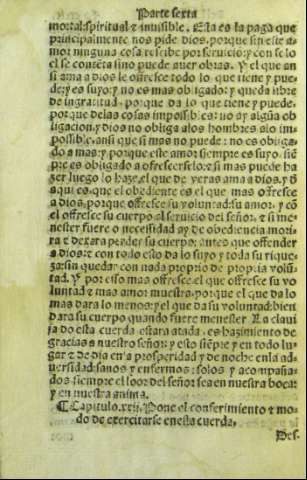 Parte sexta
mortal: spiritual ⁊ inuisible. Esta es la paga que
principalmente nos pide dios, porque sin este a-
mor ninguna cosa rescibe por seruicio: y con solo
el se contẽta sino puede auer obras. Y el que an
si ama a dios le offresce todo lo que tiene y pue-
de: y es suyo: y no es mas obligado: y queda libre
de ingratitud, porque da lo que tiene y puede,
porque delas cosas impossibles: no ay algũa ob
ligacion, y dios no obliga alos hombres alo im-
possible, ansi que si mas no puede: no es obliga-
do a mas: y porque este amor siempre es suyo, siẽ
pre es obligado a offrescerselo: ⁊ si mas puede ha
zer luego lo haze, el que de veras ama a dios, y d̃
aqui es, que el obediente es el que mas offresce
a dios, porque offresce su voluntad: su amor, y cõ
el offresce su cuerpo al seruicio del señor, ⁊ si me-
nester fuere o necessidad ay de obediencia moti-
ra ⁊ dexara perder su cuerpo: antes que offender
a dios: ⁊ con todo esto da lo suyo y toda su rique-
za: sin quedar con nada proprio de propia volũ
tad. Y por esso mas offresce el que offresce su vo
luntad ⁊ mas amor muestra, porque el que da lo
mas dara lo menos: y el que da su voluntad: bien
dara su cuerpo quando fuere menester. La claui
ja do esta cuerda estara atada, es hazimiento de
gracias a nuestro señor: y esto siẽpre y en todo lu
gar ⁊ de dia en la prosperidad y de noche enla ad
uersidad: sanos y enfermos: solos y acompaña-
dos siempre el loor del señor sea en nuestra boca:
y en nuestra anima.
¶ Capitulo. xxij. Pone el conferimiento ⁊ mo-
do de exercitarse enesta cuerda.
Des-